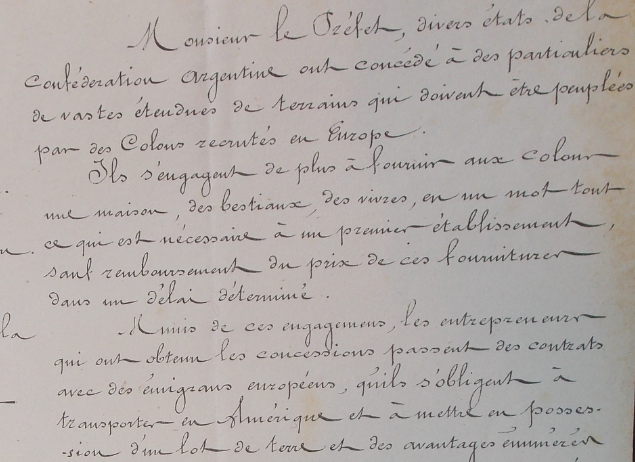 Monsieur le Préfet, divers états de la
Confédération Argentine ont concédé à des particuliers
de vastes étendues de terrains qui doivent être peuplées
par des Colons recrutés en Europe.
Ils s'engagent de plus à fournir aux colons
une maison, des bestiaux, des vivres, en un mot tout
ce qui est nécessaire à un premier établissement,
sauf remboursement du prix de ces fournitures
dans un délai déterminé.
la
Munis de ces engagemens, les entrepreneurs
qui ont obtenu les concessions passent des contrats
avec des émigrans européens, qu'ils s'obligent à
transporter en Amérique et à mettre en posses-
-sion d'un lot de terre et des avantages énumérés